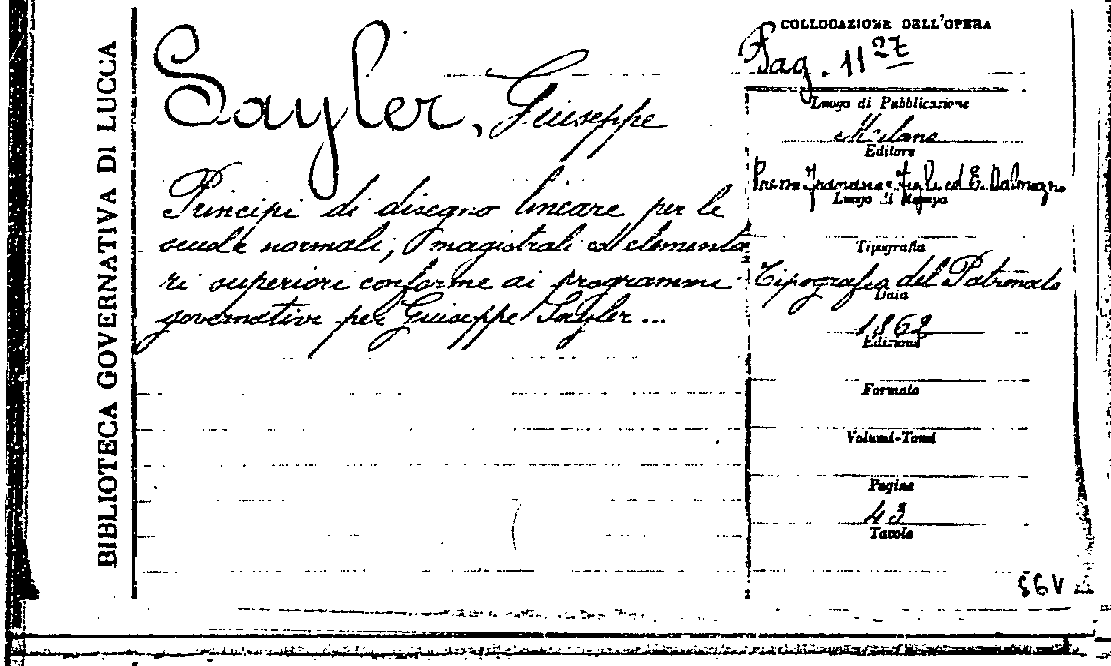 BIBLIOTECA GOVERNATIVA DI LUCCA
Sayler, Giuseppe
Principi di disegno lineare per le
scuole normali, magistrali ed elementa
ri superiori conforme ai programmi
governativi per Giuseppe Sayler ...
COLLOCAZIONE DELL'OPERA
Pag. 11 27
Luogo di Pubblicazione
Milano
Editore
e Figli ed E. Dalmazzo
Luogo di Stampa
Tipografia
Tipografia del Patronato
Data
1862
Edizione
Formato
Volumi-Tomi
Pagine
43
Tavole